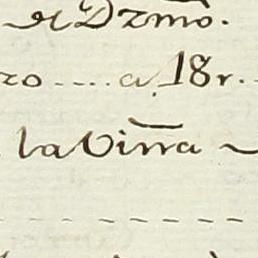 el Dzmo.
ro .... a 18 r.
la Viña